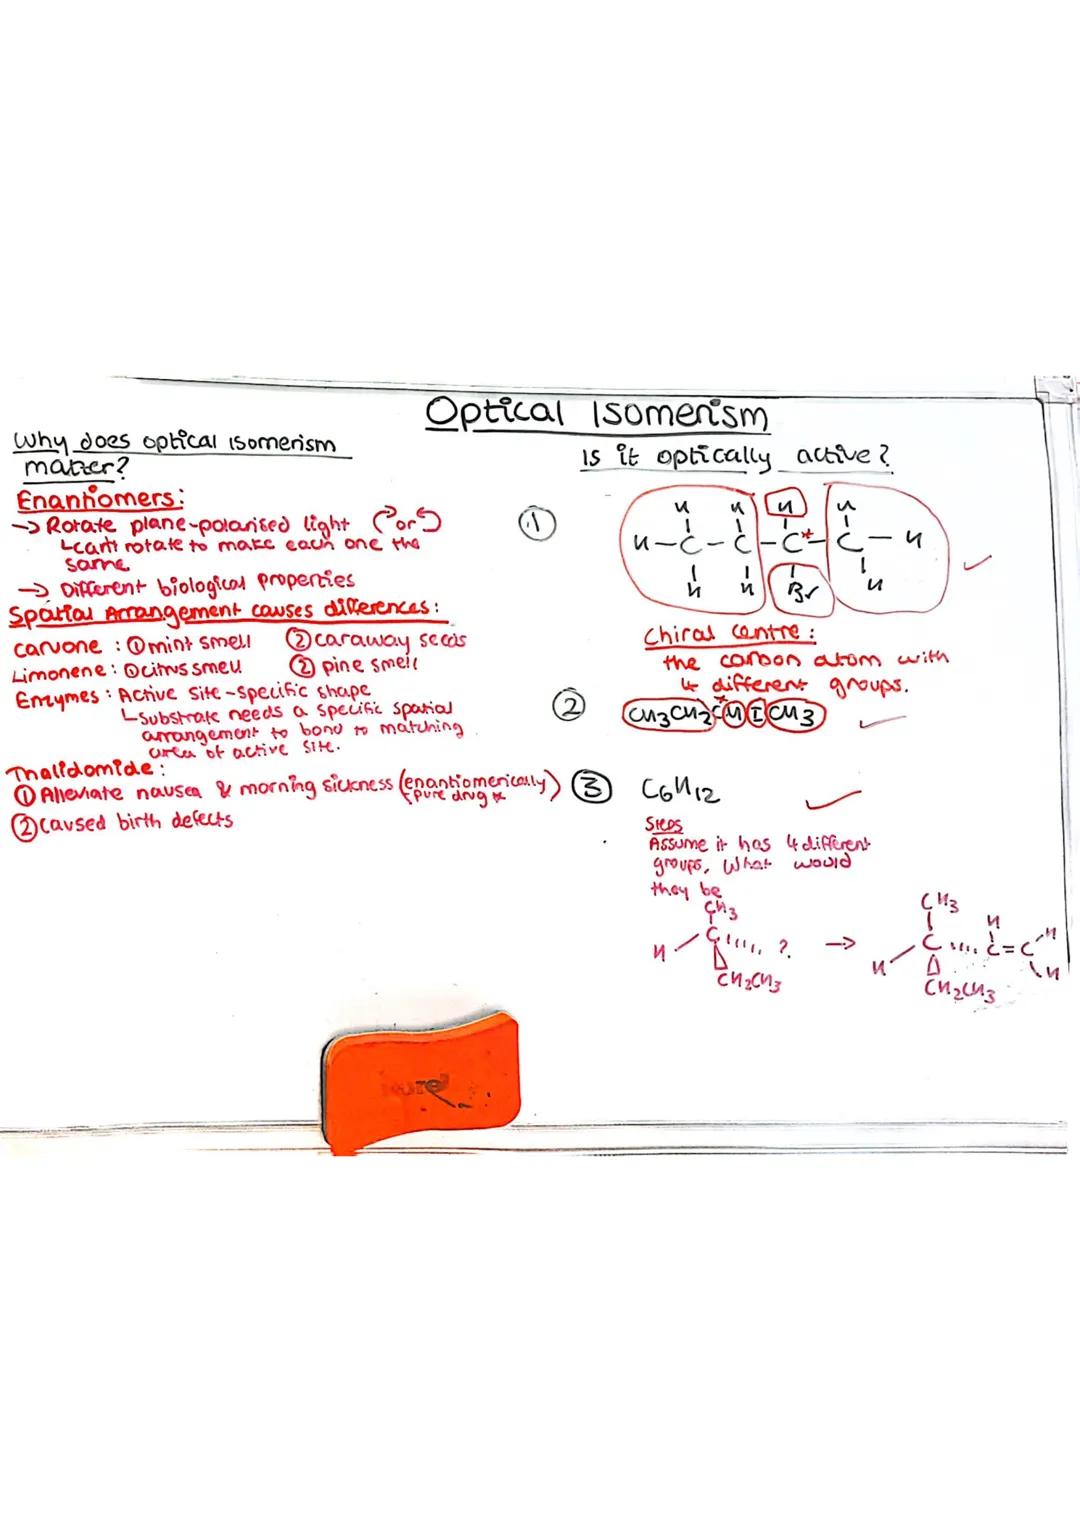 Optical Isomerism
Why does optical isomerism
matter?
Enantiomers:
→ Rotate plane-polarised light (↷ or ↶)
↳ can't rotate to make each one the
same
→ Different biological properties
Spatial Arrangement causes differences:
Carvone : ① mint smell ② caraway seeds
Limonene : ① citrus smell ② pine smell
Enzymes : Active Site - Specific shape
↳ Substrate needs a specific spatial
arrangement to bond to matching
area of active site.
Thalidomide :
① Alleviate nausea & morning sickness (enantiomerically
pure drug *)
② Caused birth defects
Is it optically active?
①
H H H H
H-C-C-C*-C-H
H H Br H
Chiral Centre :
the carbon atom with
4 different groups.
② CH3CH2C*HICH3
③ C6H12
Steps
Assume it has 4 different
groups, What would
they be
CH3
H C ?
CH2CH3
→
CH3
H
H C C=C H
H
CH2CH3